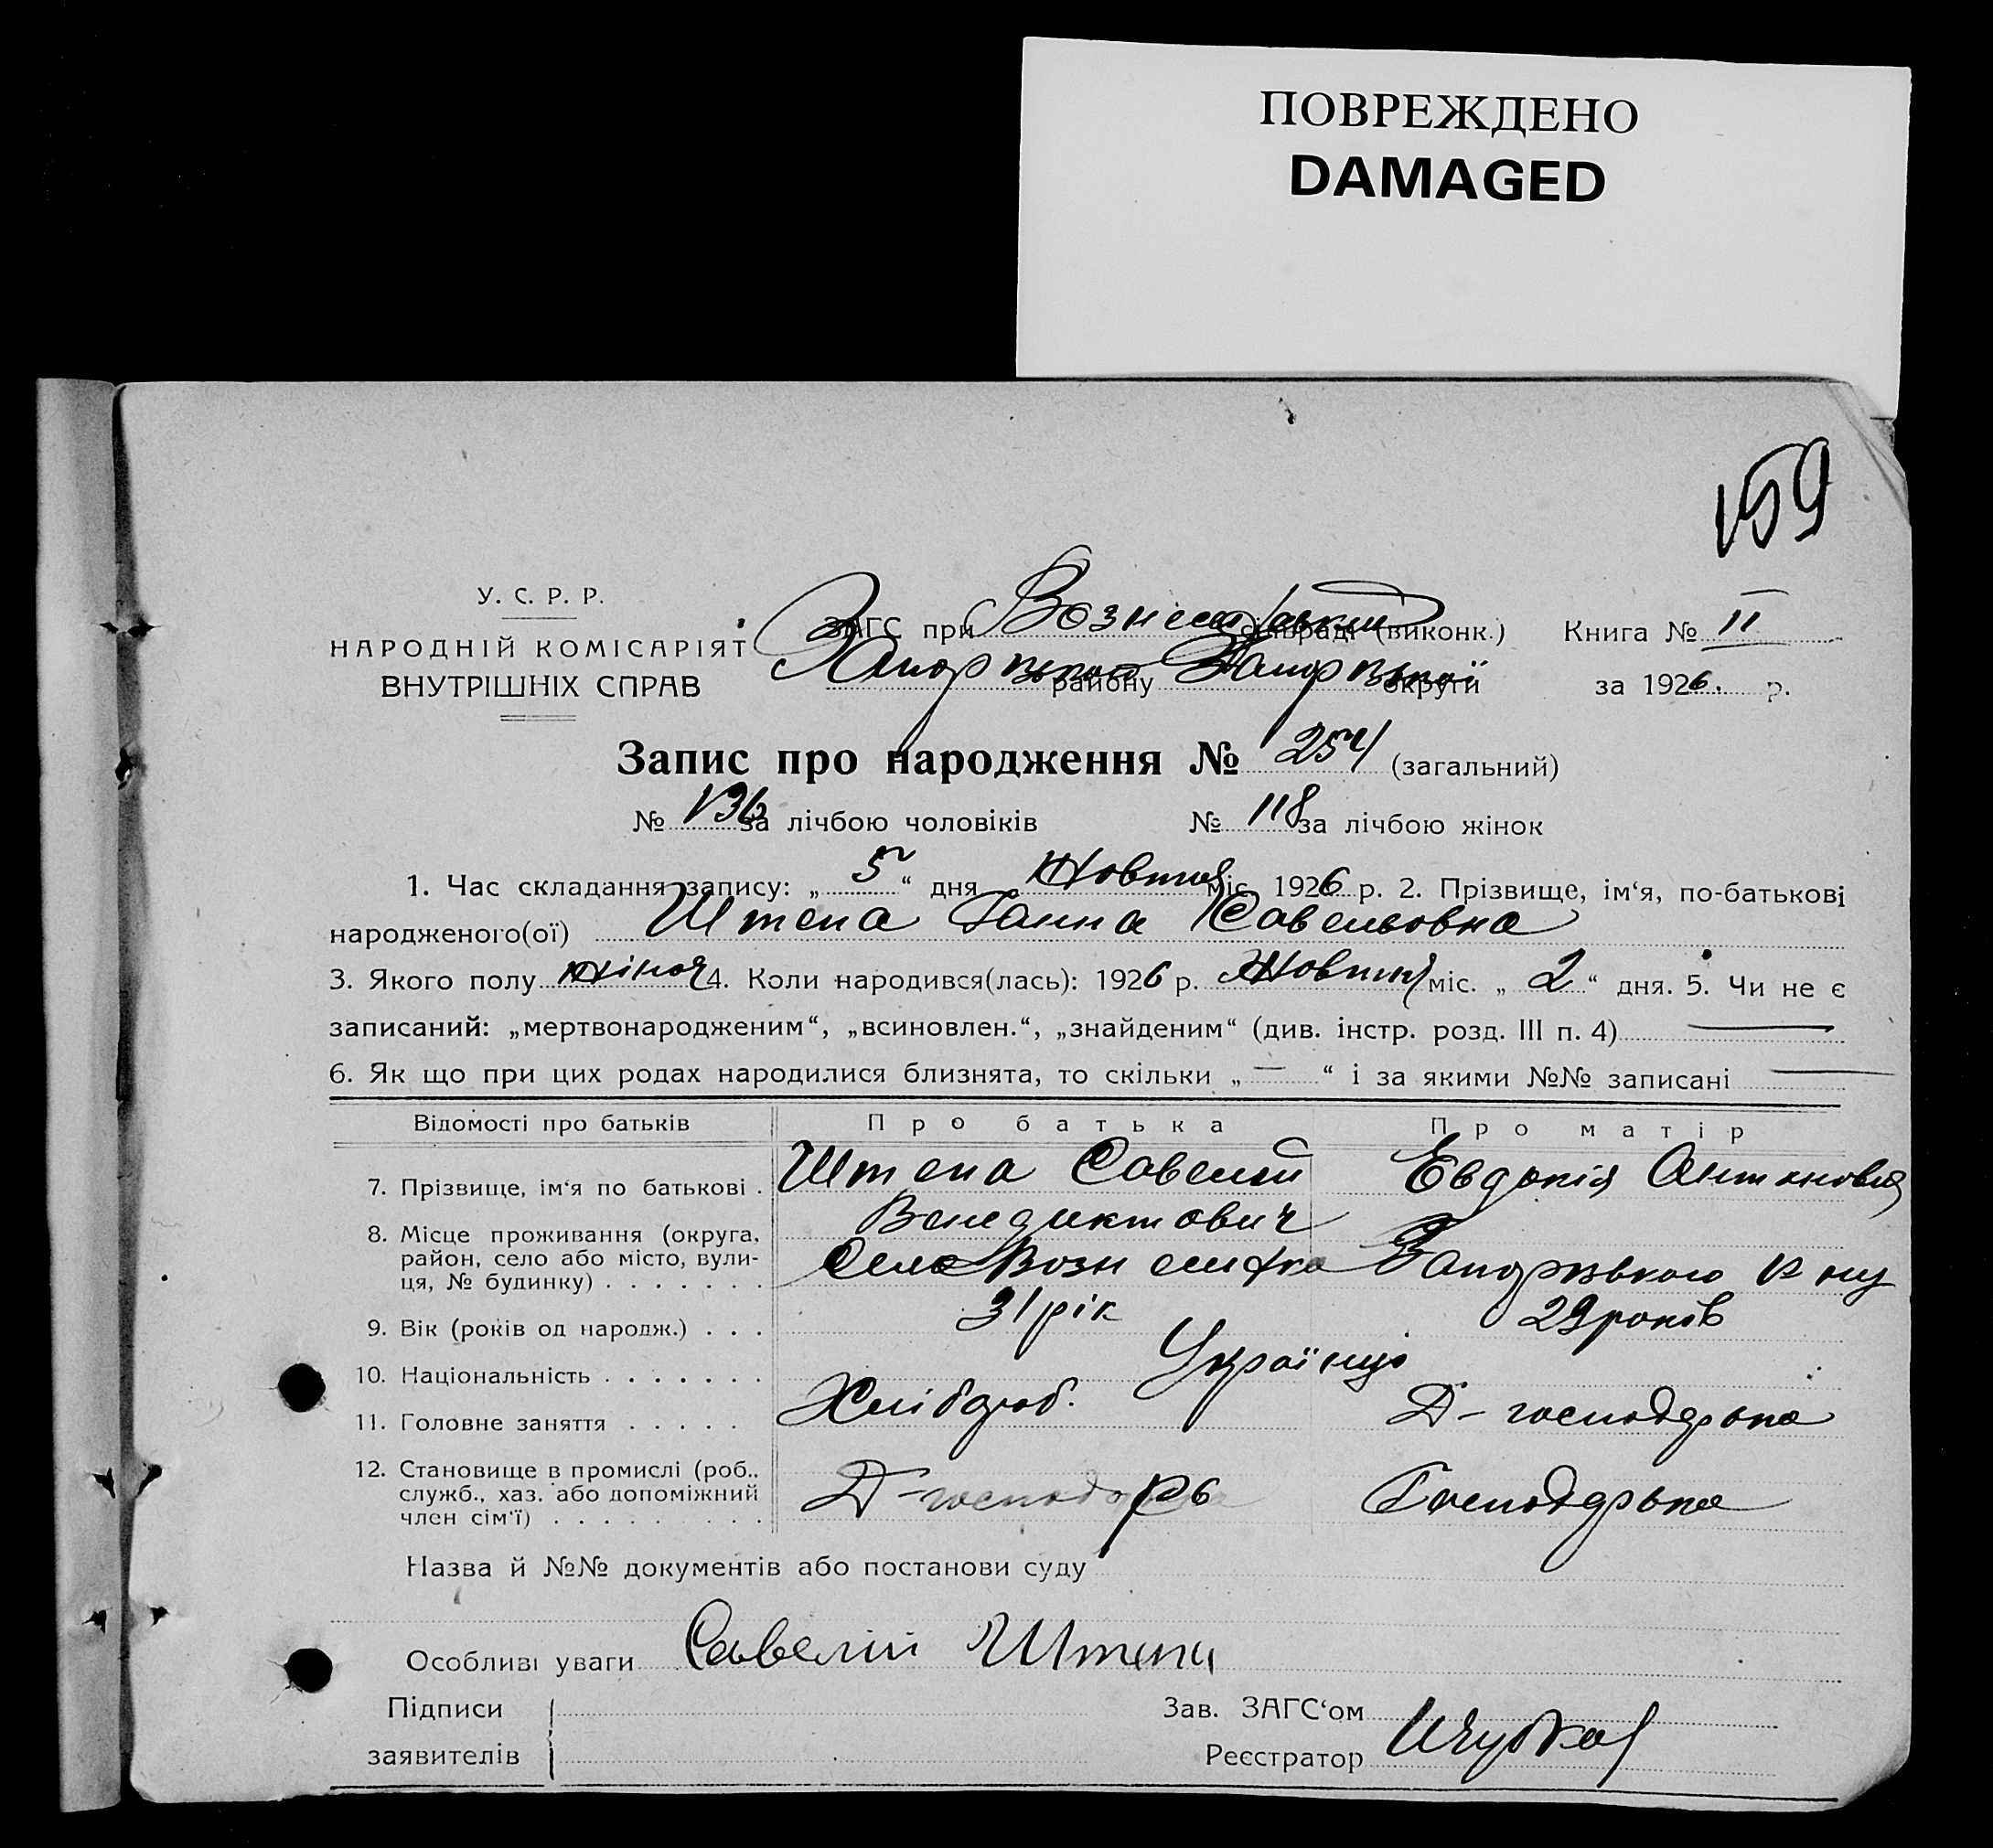 ПОВРЕЖДЕНО
DAMAGED
159
У. С. Р. Р.
НАРОДНІЙ КОМІСАРІЯТ
ВНУТРІШНІХ СПРАВ
ЗАГС при Вознесенській сільраді (виконк.) Книга № II
Запорізького району Запорізької округи за 1926. р.
Запис про народження № 254 (загальний)
№ 136 за лічбою чоловіків № 118 за лічбою жінок
1. Час складання запису: „ 5 “ дня Жовтня міс. 1926 р. 2. Прізвище, ім‘я, по-батькові
народженого(ої) Штепа Ганна Савельовна
3. Якого полу жіноч 4. Коли народився(лась): 1926 р. Жовтня міс. „ 2 “ дня. 5. Чи не є
записаний: „мертвонародженим“, „всиновлен.“, „знайденим“ (див. інстр. розд. III п. 4) —
6. Як що при цих родах народилися близнята, то скільки „ — “ і за якими №№ записані —
Відомості про батьків Про батька Про матір
7. Прізвище, ім‘я по батькові . Штепа Савелій Венедиктович Евдокія Антоновна
8. Місце проживання (округа, район, село або місто, вули-
ця, № будинку) . . . . . . . Село Вознесенка Запорізького р ну
9. Вік (років од народж.) . . . 31 рік 29 років
10. Національність . . . . . . . Українці
11. Головне заняття . . . . . Хлібороб. Д-господарька
12. Становище в промислі (роб.,
служб., хаз. або допоміжний
член сім‘ї) . . . . . . . . . Д-господарь Господарька
Назва й №№ документів або постанови суду
Особливі уваги Савелий Штепа
Підписи Зав. ЗАГС‘ом
заявителів Реєстратор